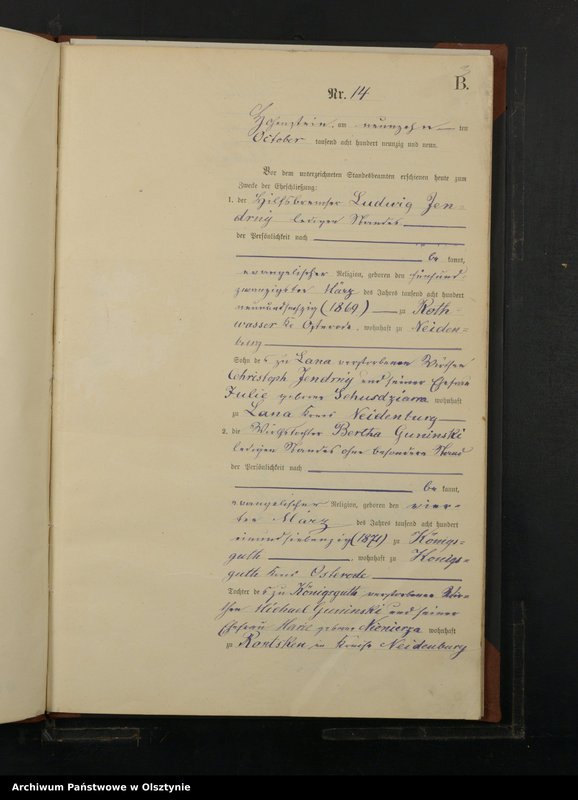 B.
Nr. 14
Hohenstein, am neunzehn ten
October tausend acht hundert neunzig und neun.
Vor dem unterzeichneten Standesbeamten erschienen heute zum
Zwecke der Eheschließung:
1. der Hilfsbremser Ludwig Jen-
drny ledigen Standes
der Persönlichkeit nach
be kannt,
evangelischer Religion, geboren den fünfund-
zwanzigsten März des Jahres tausend acht hundert
neunundsechzig (1869) zu Roth-
wasser Kr. Osterode, wohnhaft zu Neiden-
burg
Sohn des zu Lana verstorbenen Wirthen
Christoph Jendrny und seiner Ehefrau
Julie geborene wohnhaft
zu Lana Kreis Neidenburg
2. die Wirthstochter Bertha Guninski
ledigen Standes ohne besonderen Stand
der Persönlichkeit nach
be kannt,
evangelischer Religion, geboren den vier-
ten März des Jahres tausend acht hundert
einundsiebenzig (1871) zu Königs-
guth, wohnhaft zu Königs-
guth Kreis Osterode
Tochter des zu Königsguth verstorbenen Wir-
then Michael Guninski und seiner
Ehefrau Marie geborene wohnhaft
zu Kreise Neidenburg
Archiwum Państwowe w Olsztynie